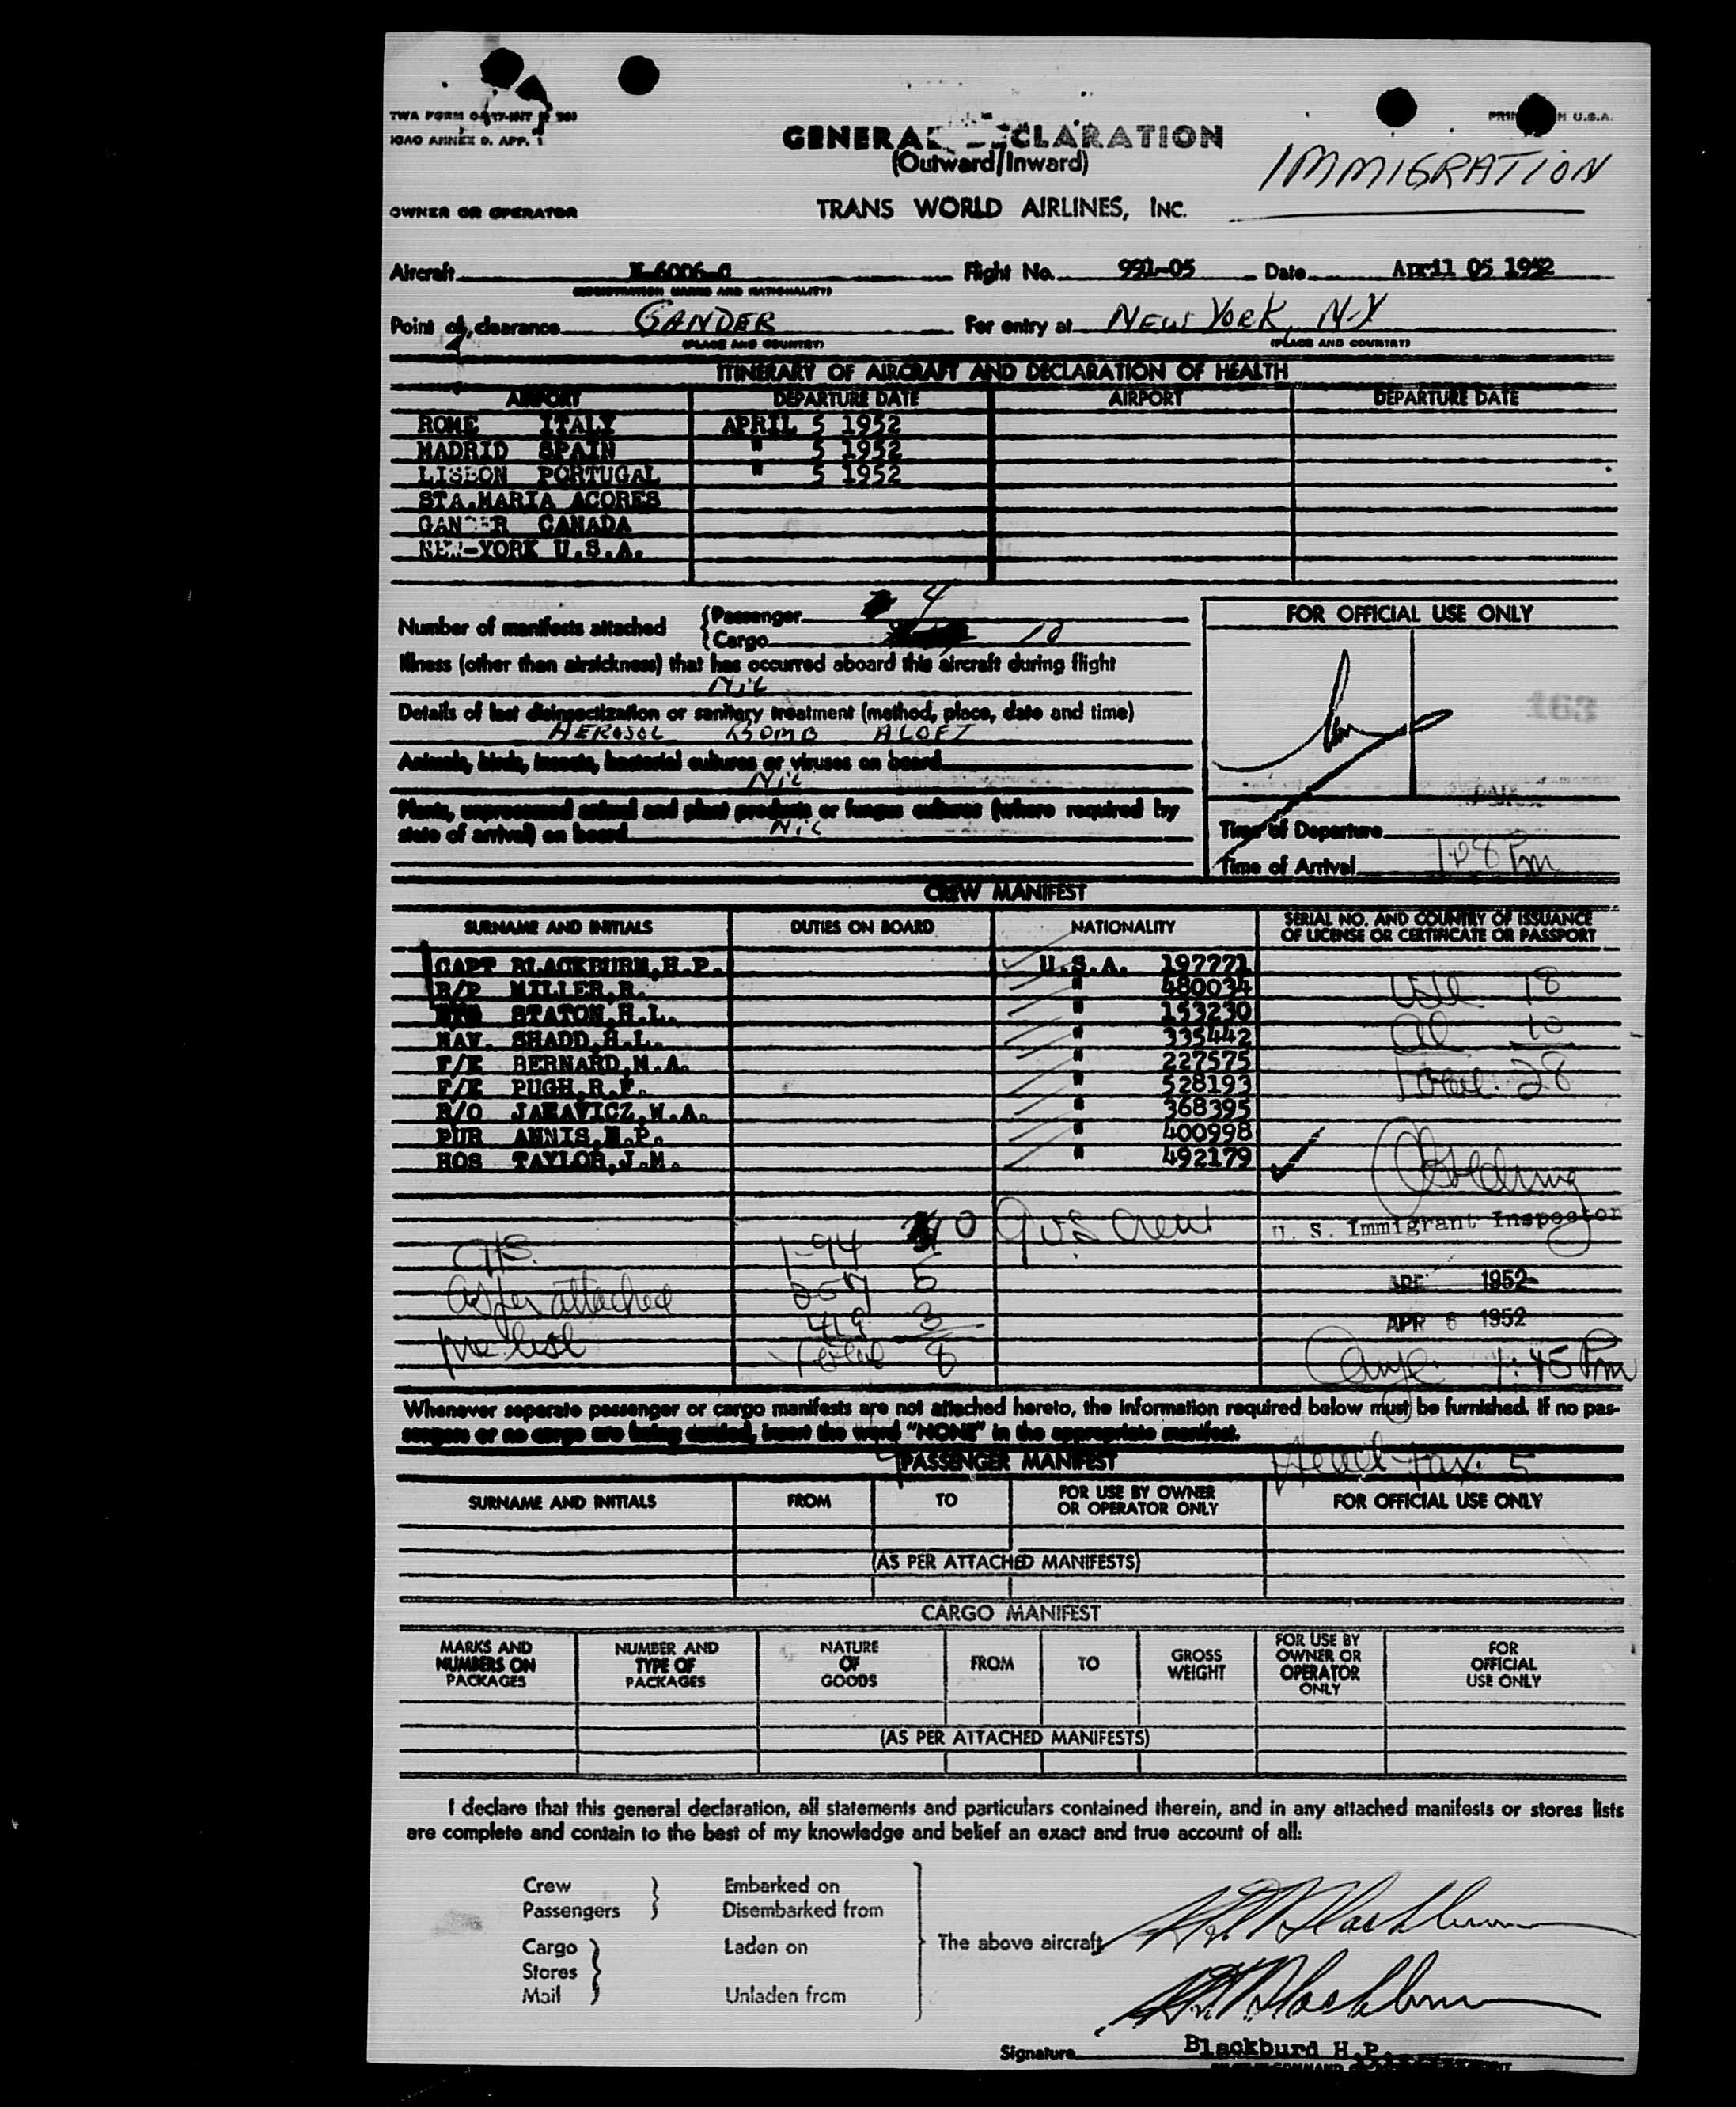 TWA FORM
PRIN N U.S.A.
ICAO ANNEX 9. APP. 1
GENERAL DECLARATION
(Outward/Inward)
IMMIGRATION
OWNER OR OPERATOR TRANS WORLD AIRLINES, INC.
Aircraft N 6006 C Flight No. 991-05 Date April 05 1952
(REGISTRATION MARKS AND NATIONALITY)
Point of clearance GANDER For entry at NEW YORK, N.Y
(PLACE AND COUNTRY) (PLACE AND COUNTRY)
ITINERARY OF AIRCRAFT AND DECLARATION OF HEALTH
AIRPORT DEPARTURE DATE AIRPORT DEPARTURE DATE
ROME ITALY APRIL 5 1952
MADRID SPAIN " 5 1952
LISBON PORTUGAL " 5 1952
STA.MARIA ACORES
GANDER CANADA
NEW-YORK U.S.A.
Number of manifests attached Passenger 4
Cargo 10
FOR OFFICIAL USE ONLY
Illness (other than airsickness) that has occurred aboard this aircraft during flight
Nil
163
Details of last disinsectization or sanitary treatment (method, place, date and time)
AEROSOL BOMB ALOFT
Animals, birds, insects, bacterial cultures or viruses on board
Nil
Plants, unprocessed animal and plant products or fungus cultures (where required by
state of arrival) on board Nil
Time of Departure
Time of Arrival 108 Pm
CREW MANIFEST
SURNAME AND INITIALS DUTIES ON BOARD NATIONALITY SERIAL NO. AND COUNTRY OF ISSUANCE OF LICENSE OR CERTIFICATE OR PASSPORT
CAPT BLACKBURN,H.P. U.S.A. 197771
R/P MILLER,R. " 480034
STATON,H.L. " 153230
NAV. SHADD,H.L. " 335442
F/E BERNARD,M.A. " 227575
F/E PUGH,R.F. " 528193
R/O JAKAVICZ,W.A. " 368395
PUR ANNIS,M.P. " 400998
HOS TAYLOR,J.M. " 492179
USC 18
al 10
Total 28
U. S. Immigrant Inspector
9 US Crew
I-94 10
257 5
as per attached
419 3
Total 8
APR 1952
APR 6 1952
1:45 Pm
Whenever separate passenger or cargo manifests are not attached hereto, the information required below must be furnished. If no pas-
sengers or no cargo are being carried, insert the word "NONE" in the appropriate manifest.
PASSENGER MANIFEST
Head Tax 5
SURNAME AND INITIALS FROM TO FOR USE BY OWNER OR OPERATOR ONLY FOR OFFICIAL USE ONLY
(AS PER ATTACHED MANIFESTS)
CARGO MANIFEST
MARKS AND NUMBERS ON PACKAGES NUMBER AND TYPE OF PACKAGES NATURE OF GOODS FROM TO GROSS WEIGHT FOR USE BY OWNER OR OPERATOR ONLY FOR OFFICIAL USE ONLY
(AS PER ATTACHED MANIFESTS)
I declare that this general declaration, all statements and particulars contained therein, and in any attached manifests or stores lists
are complete and contain to the best of my knowledge and belief an exact and true account of all:
Crew Embarked on
Passengers Disembarked from
Cargo Laden on
The above aircraft
Stores
Mail Unladen from
Signature Blackburd H.P.